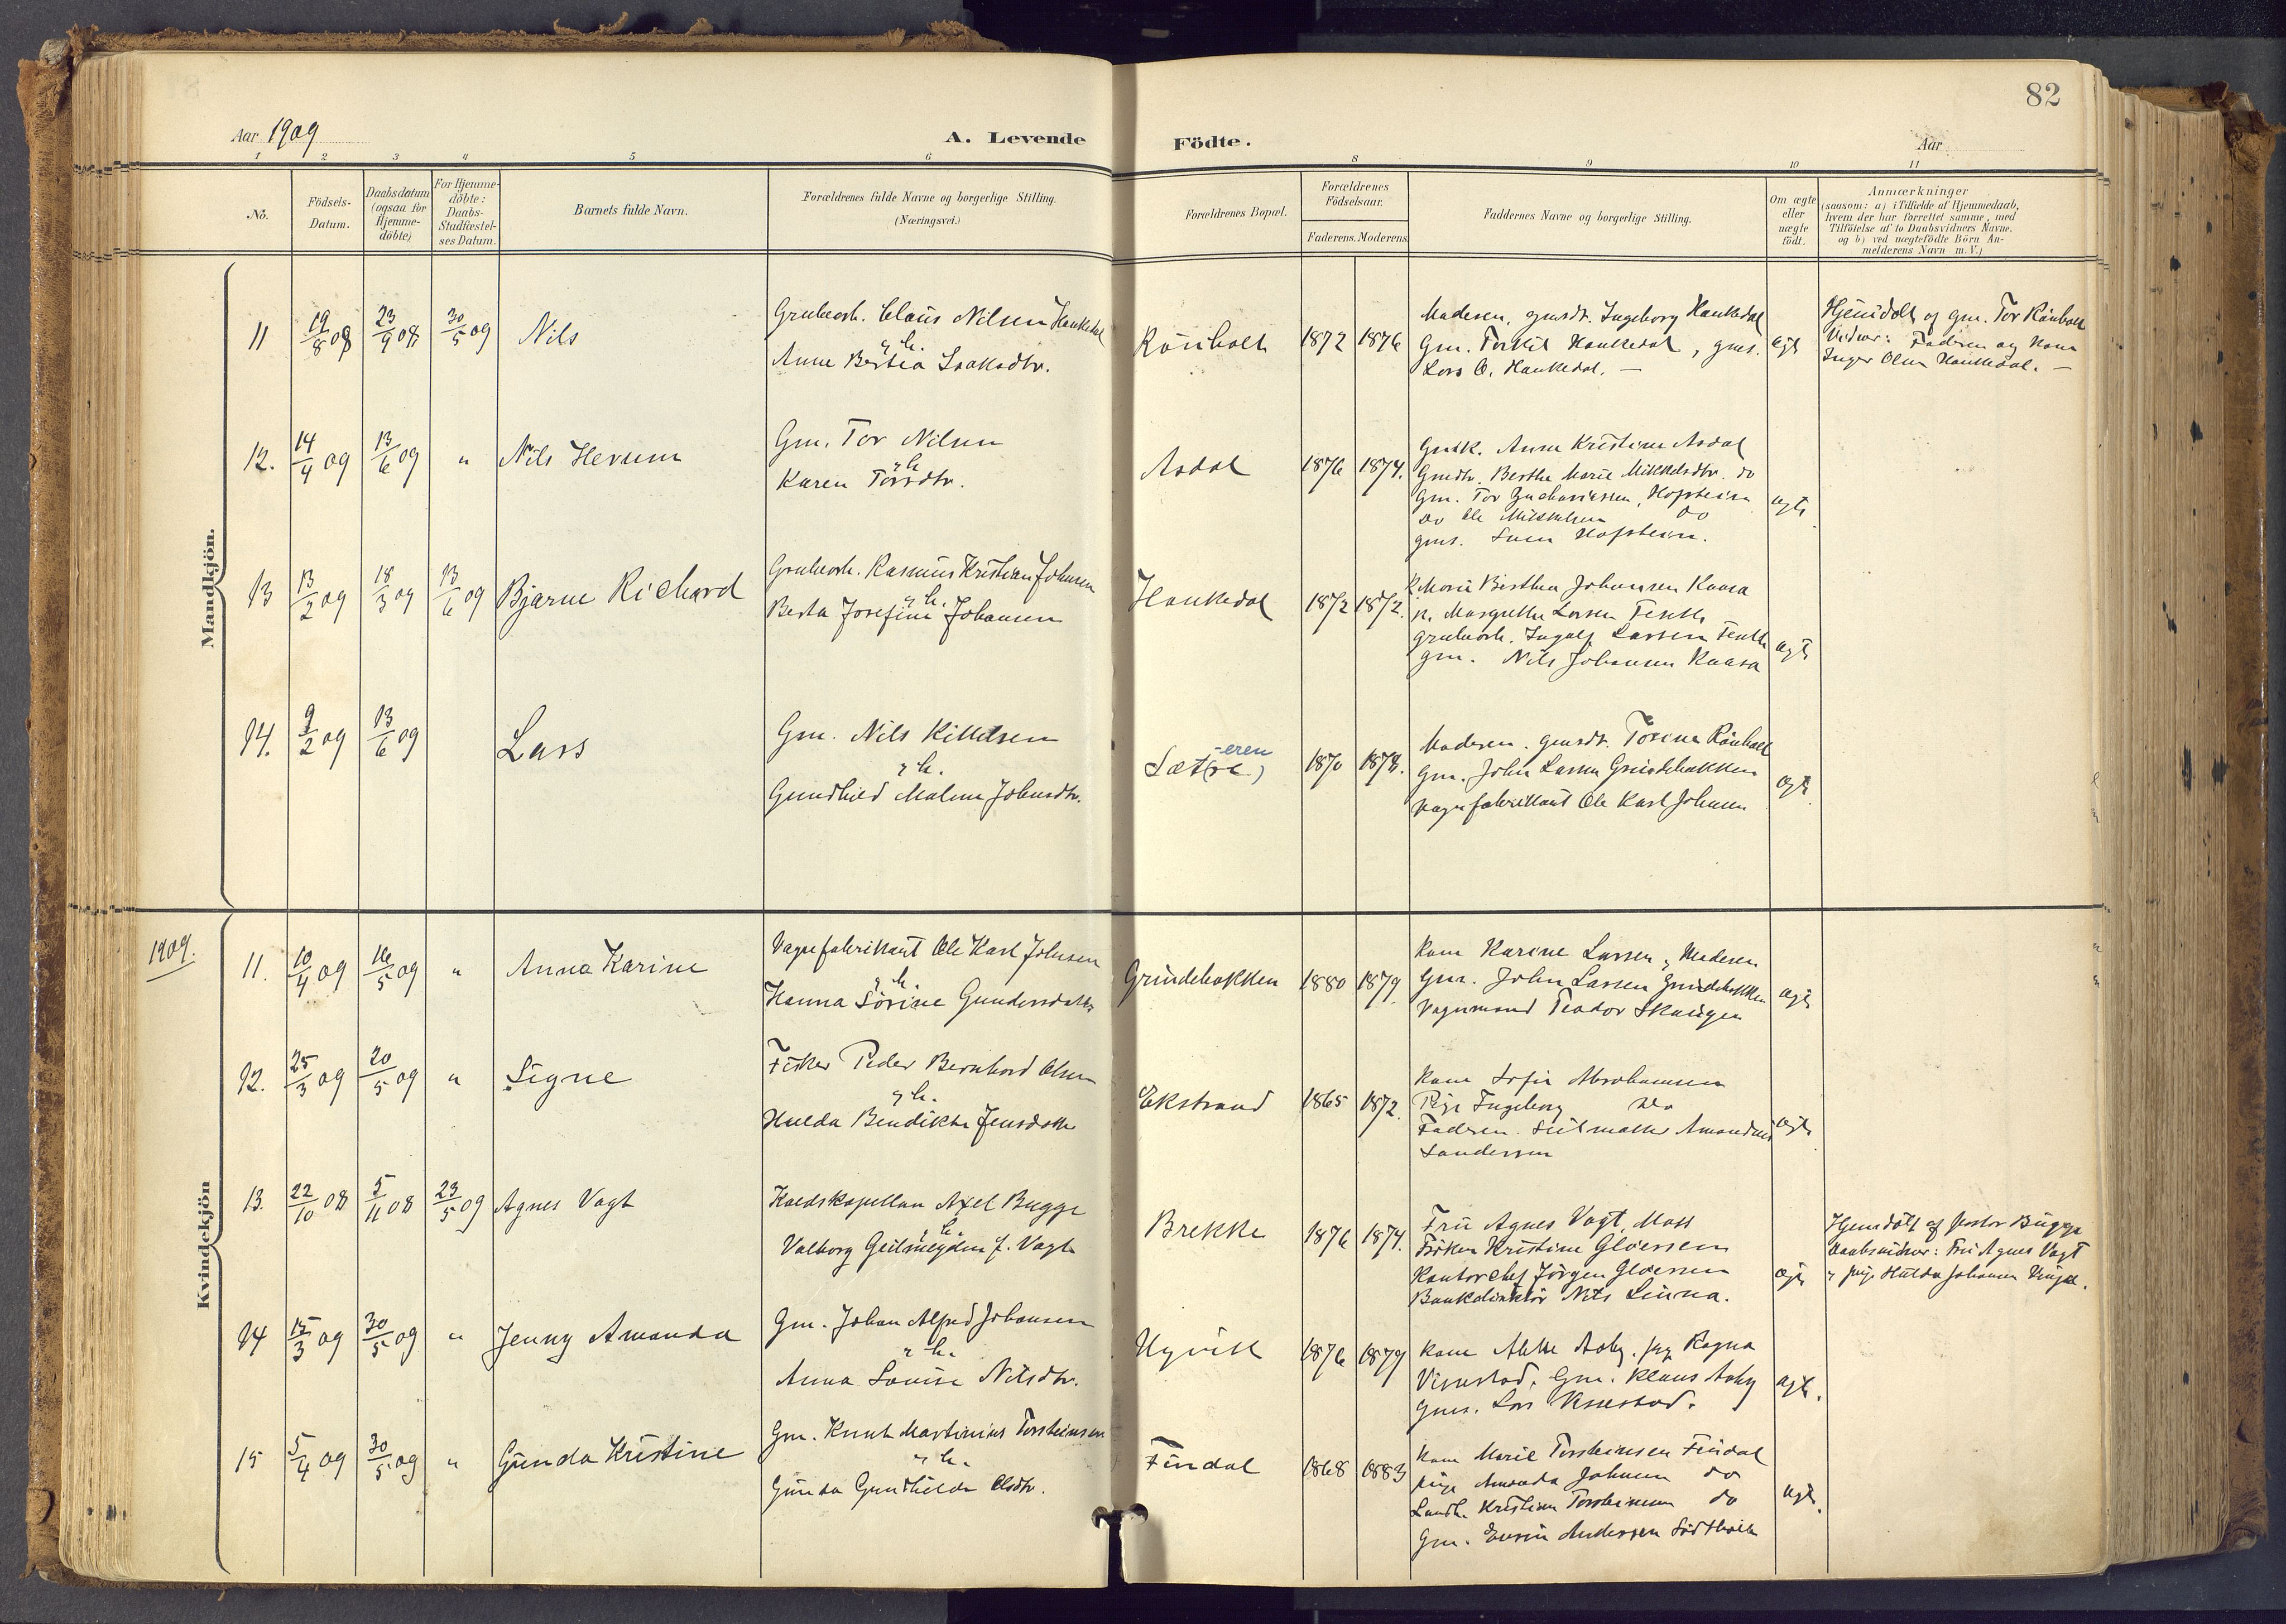 82
Aar 1909
A. Levende Födte.
Aar
1 2 3 4 5 6 8 9 10 11
No.
Födsels-Datum.
Daabsdatum (ogsaa for Hjemme-döbte)
For Hjemme-döbte: Daabs-Stadfæstel-ses Datum.
Barnets fulde Navn.
Forældrenes fulde Navne og borgerlige Stilling.
(Næringsvei.)
Forældrenes Bopæl.
Forældrenes Födselsaar.
Faderens. Moderens.
Faddernes Navne og borgerlige Stilling.
Om ægte eller uægte födt.
Anmærkninger
(saasom: a) i Tilfælde af Hjemmedaab,
hvem der har forrettet samme, med
Tilföielse af to Daabsvidners Navne,
og b) ved uægtefödte Börn An-
melderens Navn m. V.)
Mandkjön.
11 19/8 08 23/9 08 30/5 09 Nils
Grubearb. Claus Nilsen Haukedal
og h.
Anne Bertea Isaksdtr.
Rönholt 1872 1876
Moderen, gmsdt. Ingeborg Haukedal
Gm. Torkil Haukedal, gms.
Lars O. Haukedal. —
ægte
Hjemdöbt af gm. Tor Rönholt
Vidner: Faderen og Kone
Inger Olsen Haukedal. —
12. 14/4 09 13/6 09 " Nils Herum
Gm. Tor Nilsen
og h
Karen Torsdtr.
Asdal 1876 1874.
Gmk. Anne Kristine Asdal
Gmdtr. Berthe Marie Mikkelsdtr. do
Gm. Tor Zachariassen, Hafstein
do Ole Mikkelsen do
gms. Hafstein.
ægte
13 13/2 09 18/3 09 13/6 09 Bjarne Richard
Grubearb. Rasmus Kristian Johnsen
og h.
Berta Josefine Johansen
Haukedal 1872 1872.
K. Marie Birthea Johansen Kaasa
p. Margrethe Larsen
grubearb. Ingolf Larsen
gm. Nils Johansen Kaasa
ægte
14. 9/2 09 13/6 09 Lars
Gm. Nils Kittilsen
og h.
Gundhild Maline Johnsdtr.
-eren
Sæt(re) 1870 1878.
Moderen. gmsdt. Torine Rönholt
Gm. John Larsen Grindebakken
Vognfabrikant Ole Karl Johnsen
ægte
Kvindekjön
1909.
11. 10/4 09 16/5 09 " Anna Karine
Vognfabrikant Ole Karl Johnsen
og h.
Hanna Sörine Gundersdatter
Grindebakken 1880 1879
Kone Karine Larsen, Moderen
Gm. John Larsen Grindebakken
Vognmand Teodor Skaugen
ægte
12. 25/3 09 20/5 09 " Signe
Fisker Peder Bernhard Olsen
og h.
Hulda Bendikte Jensdatter
Ekstrand 1865 1872.
Kone Sofie Abrahamsen
Pige Ingeborg do
Faderen. Seilmaker Amandus
Sandersen
ægte
13. 22/10 08 5/11 08 23/5 09 Agnes Vogt
Kaldskapellan Axel Bugge
og h.
Valborg Geilmeyden f. Vogt
Brekke 1876 1874.
Fru Agnes Vogt, Moss
Fröken Kristine Gloersen
Kontorchef Jörgen Gloersen
Bankdirektör Nils
ægte
Hjemdöbt af pastor Bugge
Daabsvidner: Fru Agnes Vogt
og pige Hulda Johansen
14 15/3 09 30/5 09 " Jenny Amanda
Gm. Johan Alfred Johansen
og h.
Anna Louise Nilsdtr.
1876 1879
Kone Aaby. pige Ragna
Vissestad. Gm. Klaus Aaby
gms. Lars Vissestad.
ægte.
15 5/4 09 30/5 09 " Gunda Kristine
Gm. Knut Martinius Torsteinsen
og h.
Gunda Gunhilde Olsdtr.
Findal 1868 1883
Kone Marie Torsteinsen Findal
pige Amanda Johnsen do
Landh. Kristian Torsteinsen do
Gm. Andersen
ægte.